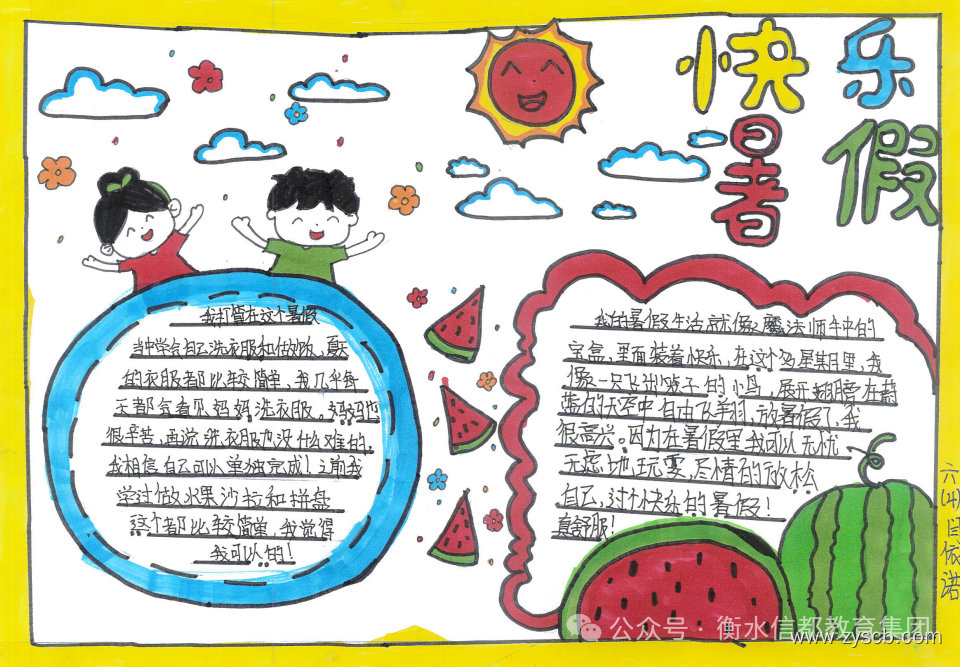 快乐
暑假
我打算在这个暑假
当中学会自己洗衣服和做饭，夏天
的衣服都比较简单，我几乎每
天都会看见妈妈洗衣服。妈妈也
很辛苦，再说洗衣服也没什么难的，
我相信自己可以单独完成！之前我
学过做水果沙拉和拼盘
这个都比较简单，我觉得
我可以的！
我的暑假生活就像魔法师手中的
宝盒，里面装着快乐，在这个多星期里，我
像一只飞出笼子的小鸟，展开翅膀在蔚
蓝的天空中自由飞翔。放暑假了，我
很高兴。因为在暑假里我可以无忧
无虑地玩耍，尽情的放松
自己，过个快乐的暑假！
真舒服！
六(4)闫依诺
公众号·衡水信都教育集团
www.zyscb.com